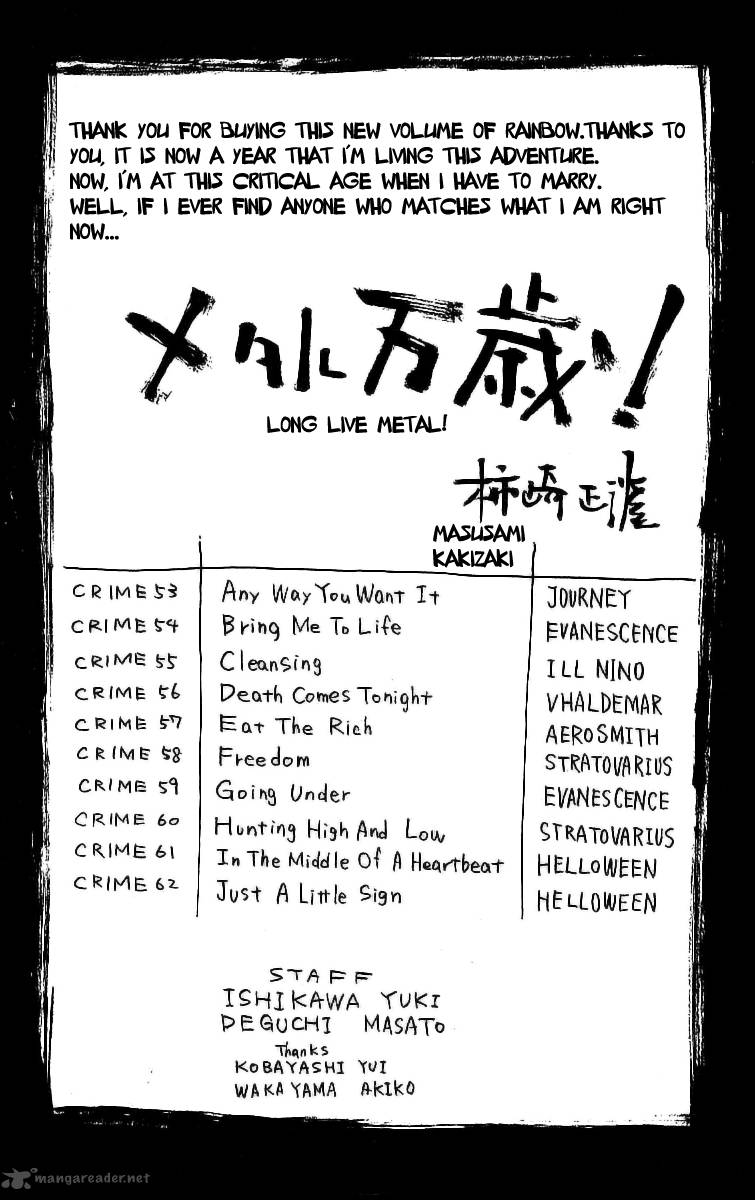 THANK YOU FOR BUYING THIS NEW VOLUME OF RAINBOW.THANKS TO
YOU, IT IS NOW A YEAR THAT I'M LIVING THIS ADVENTURE.
NOW, I'M AT THIS CRITICAL AGE WHEN I HAVE TO MARRY.
WELL, IF I EVER FIND ANYONE WHO MATCHES WHAT I AM RIGHT
NOW...
メタル万歳ッ!
LONG LIVE METAL!
柿崎正澄
MASUSAMI
KAKIZAKI
CRIME 53 Any Way You Want It JOURNEY
CRIME 54 Bring Me To Life EVANESCENCE
CRIME 55 Cleansing ILL NINO
CRIME 56 Death Comes Tonight VHALDEMAR
CRIME 57 Eat The Rich AEROSMITH
CRIME 58 Freedom STRATOVARIUS
CRIME 59 Going Under EVANESCENCE
CRIME 60 Hunting High And Low STRATOVARIUS
CRIME 61 In The Middle Of A Heartbeat HELLOWEEN
CRIME 62 Just A Little Sign HELLOWEEN
STAFF
ISHIKAWA YUKI
DEGUCHI MASATO
Thanks
KOBAYASHI YUI
WAKAYAMA AKIKO
mangareader.net